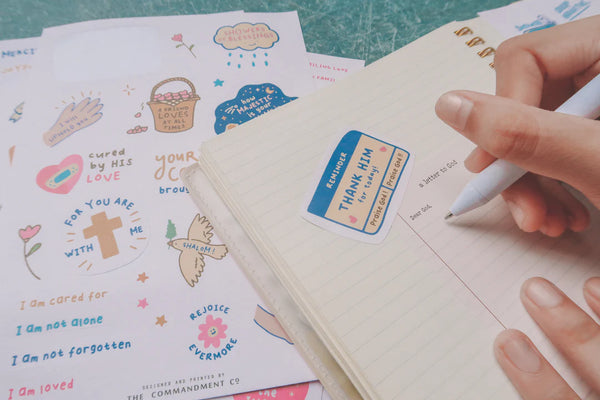 SHOWERS
of BLESSINGS
I will
UPHOLD YOU
A FRIEND
LOVES
AT ALL
TIMES
how
MAJESTIC
is your
cured
by HIS
LOVE
FOR YOU ARE
WITH ME
SHALOM!
I am cared for
I am not alone
I am not forgotten
I am loved
REJOICE
EVERMORE
DESIGNED AND PRINTED BY
THE COMMANDMENT CO
REMINDER
THANK HIM
for today!
Praise God!
Praise God!!
a letter to God
Dear God,